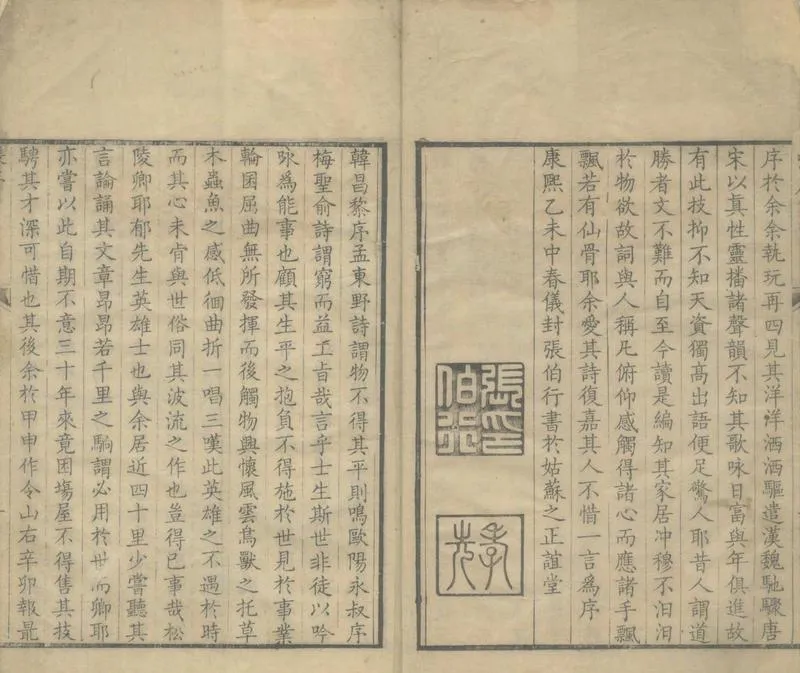 序於余余執玩再四見其洋洋洒洒驅遣漢魏馳驟唐
宋以真性靈播諸聲韻不知其歌咏日富與年俱進故
有此技抑不知天資獨高出語便足驚人耶昔人謂道
勝者文不難而自至今讀是編知其家居冲穆不汨汨
於物欲故詞與人稱凡俯仰感觸得諸心而應諸手飄
飄若有仙骨耶余愛其詩復嘉其人不惜一言為序
康熙乙未中春儀封張伯行書於姑蘇之正誼堂
張伯行印
孝先
韓昌黎序孟東野詩謂物不得其平則鳴歐陽永叔序
梅聖俞詩謂窮而益工旨哉言乎士生斯世非徒以吟
咏為能事也顧其生平之抱負不得施於世見於事業
輪囷屈曲無所發揮而後觸物興懷風雲鳥獸之托草
木蟲魚之感低徊曲折一唱三嘆此英雄之不遇於時
而其心未肯與世俗同其波流之作也豈得已事哉松
陵卿耶郁先生英雄士也與余居近四十里少嘗聽其
言論誦其文章昂昂若千里之駒謂必用於世而卿耶
亦嘗以此自期不意三十年來竟困塲屋不得售其技
騁其才深可惜也其後余於甲申作令山右辛卯報最